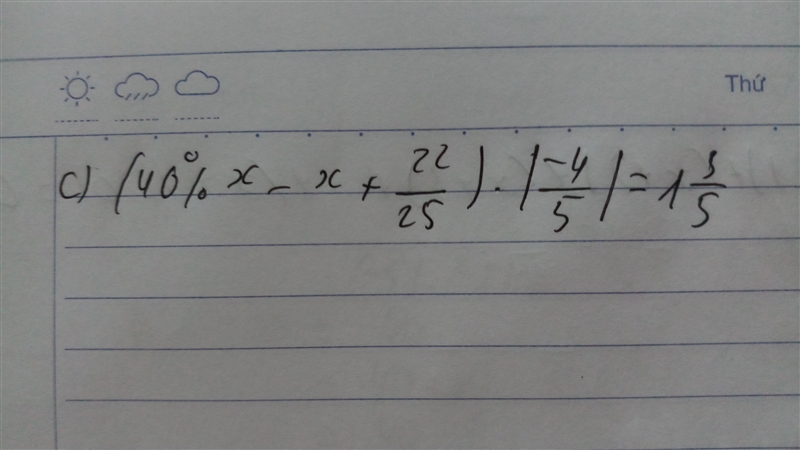 Thứ
c) (40% x - x + 22/25) . |-4/5| = 1 3/5